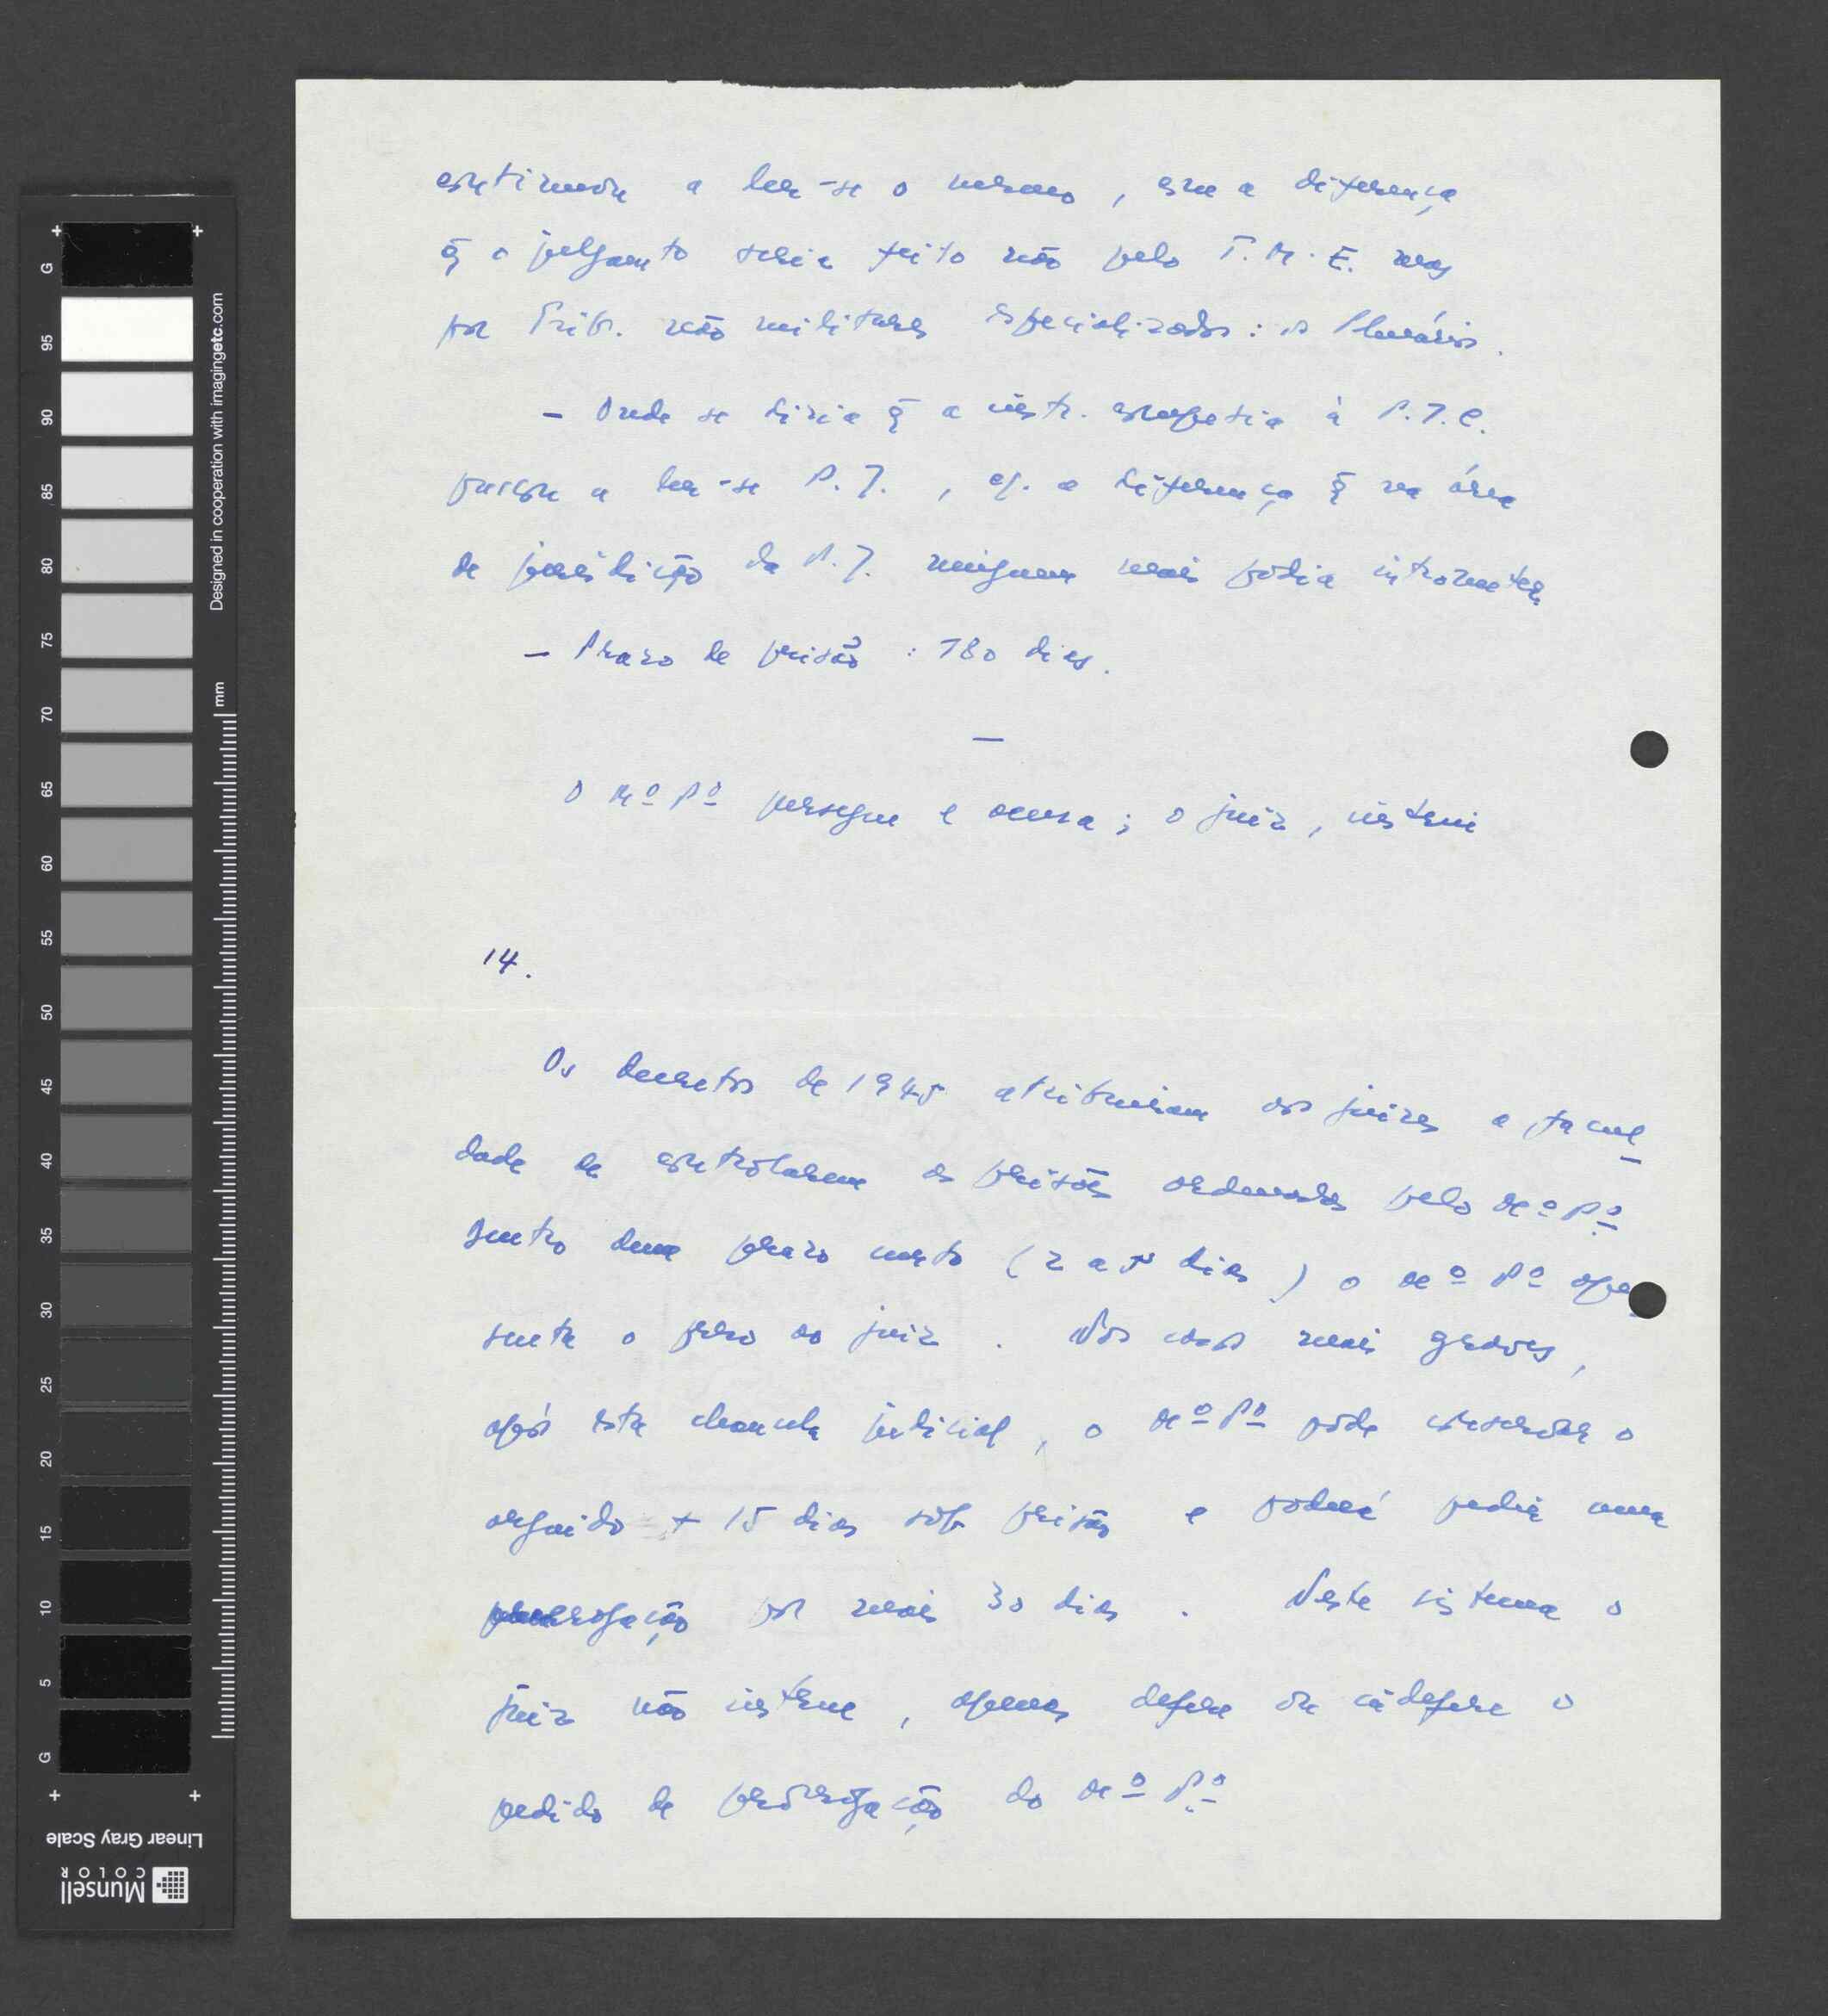 continuou a ler-se o mesmo, com a diferença
q̃ o julgamto seria feito não pelo T.M.E. mas
por Trib. não militares especializados: os Plenários.
- Onde se dizia q̃ a instr. competia à P.I.C.
passou a ler-se P.J., c/. a diferença q̃ na área
de jurisdição da P.J. ninguem mais podia intrometer
- Prazo de prisão : 180 dias.
—
O Mº Pº persegue e acusa; o juiz, instrui
14.
Os decretos de 1945 atribuiam aos juizes a facul
dade de controlarem as prisões ordenadas pelo Mº Pº
Dentro dum prazo curto (2 a 5 dias) o Mº Pº apre
senta o prêso ao juiz. Nos casos mais graves,
após esta chancela judicial, o Mº Pº póde conservar o
arguido + 15 dias sob prisão e poderá pedir uma
prorrogação por mais 30 dias. Neste sistema o
juiz não instrue, apenas defere ou indefere o
pedido de prórrogação do Mº Pº
G 95 90 85 80 75 70 65 60 55 50 45 40 35 30 25 20 15 10 5 G
Designed in cooperation with imagingetc.com
mm
Linear Gray Scale
Munsell
COLOR